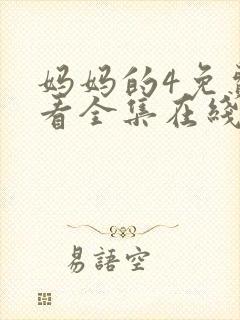 妈妈的4免
看全集在线
易語空